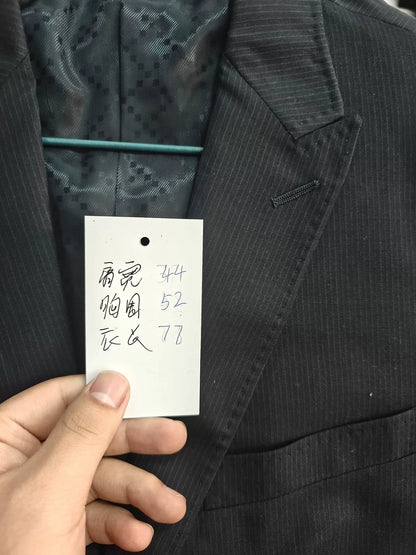 肩宽 44
胸围 52
衣长 77